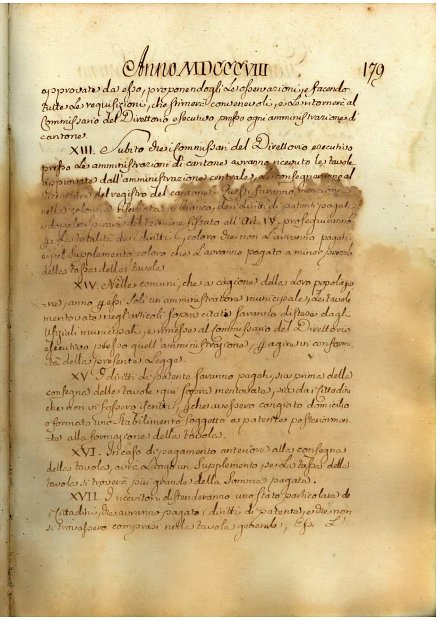 Anno MDCCCVIII 179
approvate da esso, proponendogli le osservazioni, e facendo
tutte le requisizioni, che stimerà convenevoli, e le ritornerà al
Commissario del Direttorio esecutivo presso ogni amministrazione di
cantone.
XIII. Subito che i Commissari del Direttorio esecutivo
presso le amministrazioni di cantone avranno ricevuto le tavole
approvate dall'amministrazione centrale, le consegneranno al
del registro del cantone. Questi faranno menzione
nella colonna in bianco, dei diritti di patenti pagati
e dopo lo spirare del termine fissato all'Art. IV, proseguiranno
p la totalità dei diritti, coloro che non l'avranno pagati,
e pel Supplemento coloro che l'avranno pagato a minor prezzo
della tassa della tavola.
XIV. Nelle comuni, che a cagione della loro popolazio
ne, anno p essi soli un amministratore municipale, le tavole
mentovate negli articoli sopra citati saranno distese dagl'
Uffiziali municipali, e rimesse al Commissario del Direttorio
esecutivo presso quell'amministrazione, p agire in conformi
tà della presente Legge.
XV. I diritti di patente saranno pagati, sia prima della
consegna delle tavole qui sopra mentovate, sia dai cittadini
che non vi fossero iscritti, p che avessero cangiato domicilio
o formato uno stabilimento soggetto a patente posteriormen
te alla formazione della tavola.
XVI. In caso di pagamento anteriore alla consegna
della tavola, avrà luogo un Supplemento, se la tassa della
tavola si troverà più grande della somma pagata.
XVII. I ricevitori distenderanno uno stato particolare de
i cittadini, che avranno pagato i diritti di patente, e che non
si trovassero compresi nella tavola generale; Essi l'